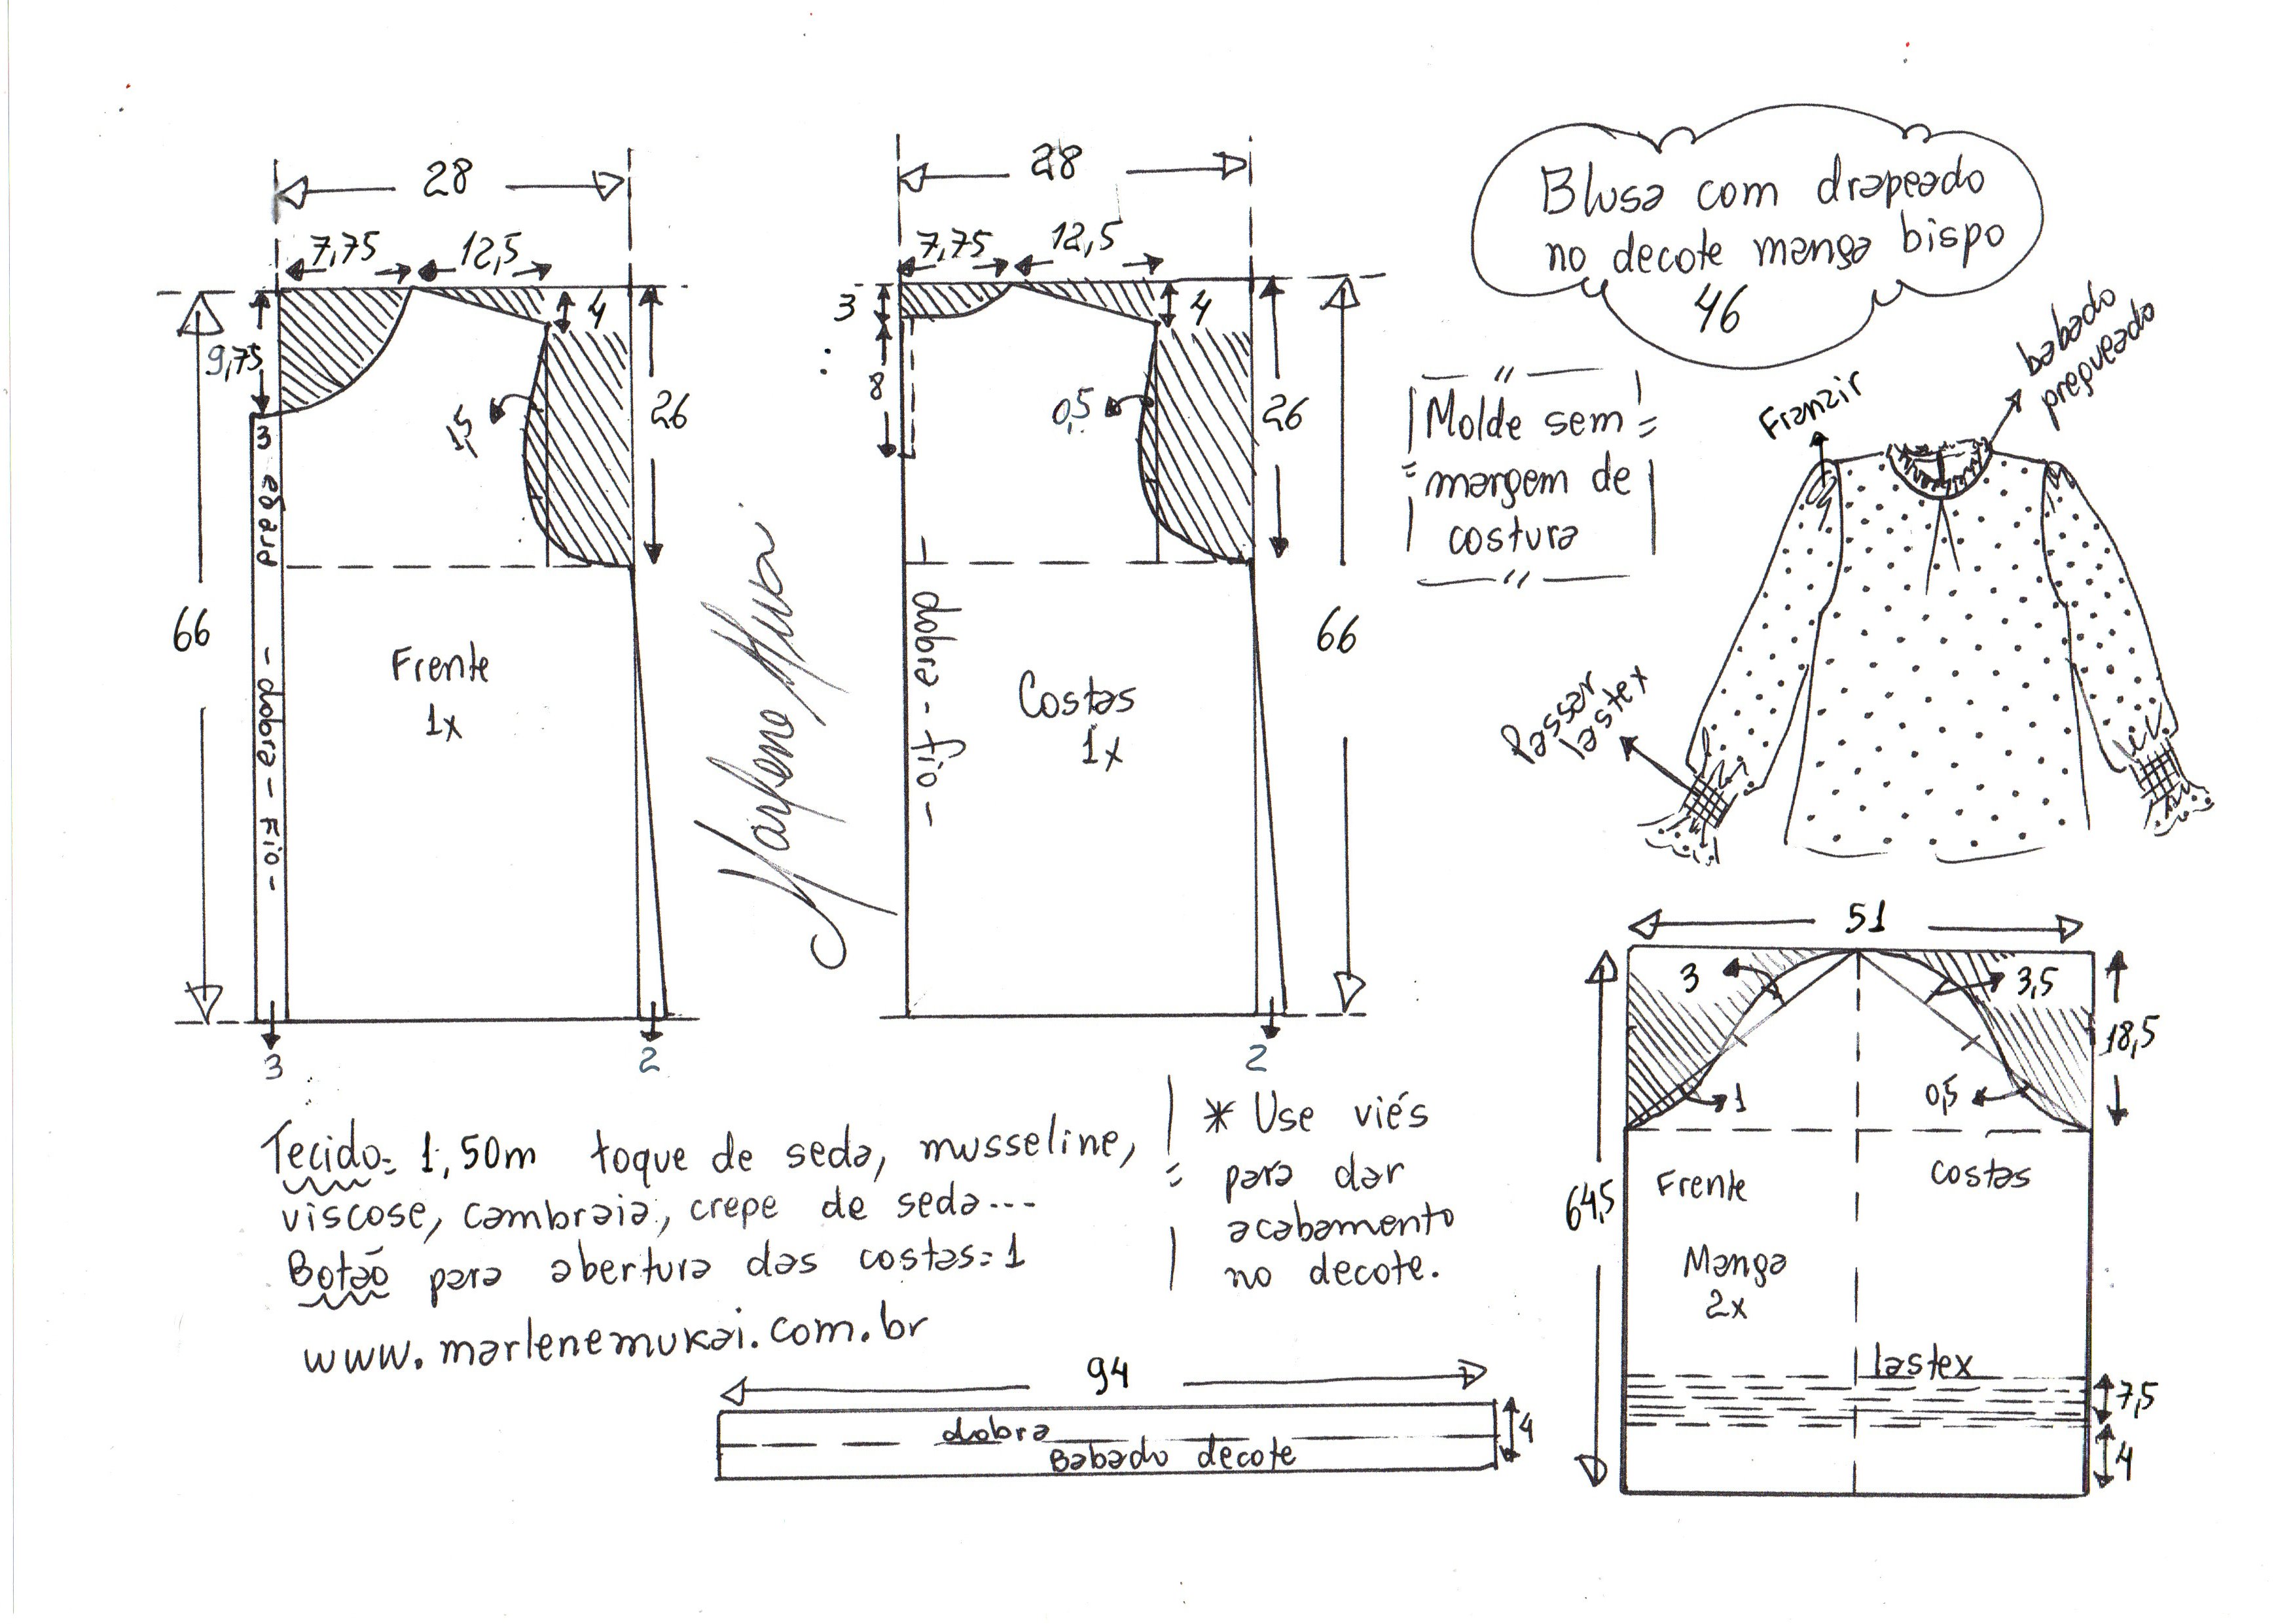 Blusa com drapeado
no decote manga bispo
46
28
7,75
12,5
4
9,75
3
prega
- dobra - Fio -
1,5
26
66
Frente
1x
3
2
28
7,75
12,5
3
4
8
0,5
26
66
dobra - fio -
Costas
1x
2
Molde sem
margem de
costura
Franzir
babado
pregueado
Passar
lastex
51
3
3,5
18,5
1
0,5
64,5
Frente
costas
Manga
2x
lastex
7,5
4
Tecido= 1,50m toque de seda, musseline,
viscose, cambraia, crepe de seda...
Botão para abertura das costas=1
www.marlenemukai.com.br
* Use viés
para dar
acabamento
no decote.
94
dobra
Babado decote
4